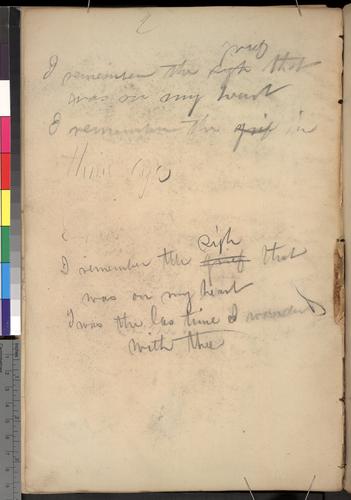 2
grief
I remember the sigh that
was on my heart
I remember the grief in
thine eye
sigh
I remember the grief that
was on my heart
'T was the las time I wandered
with thee